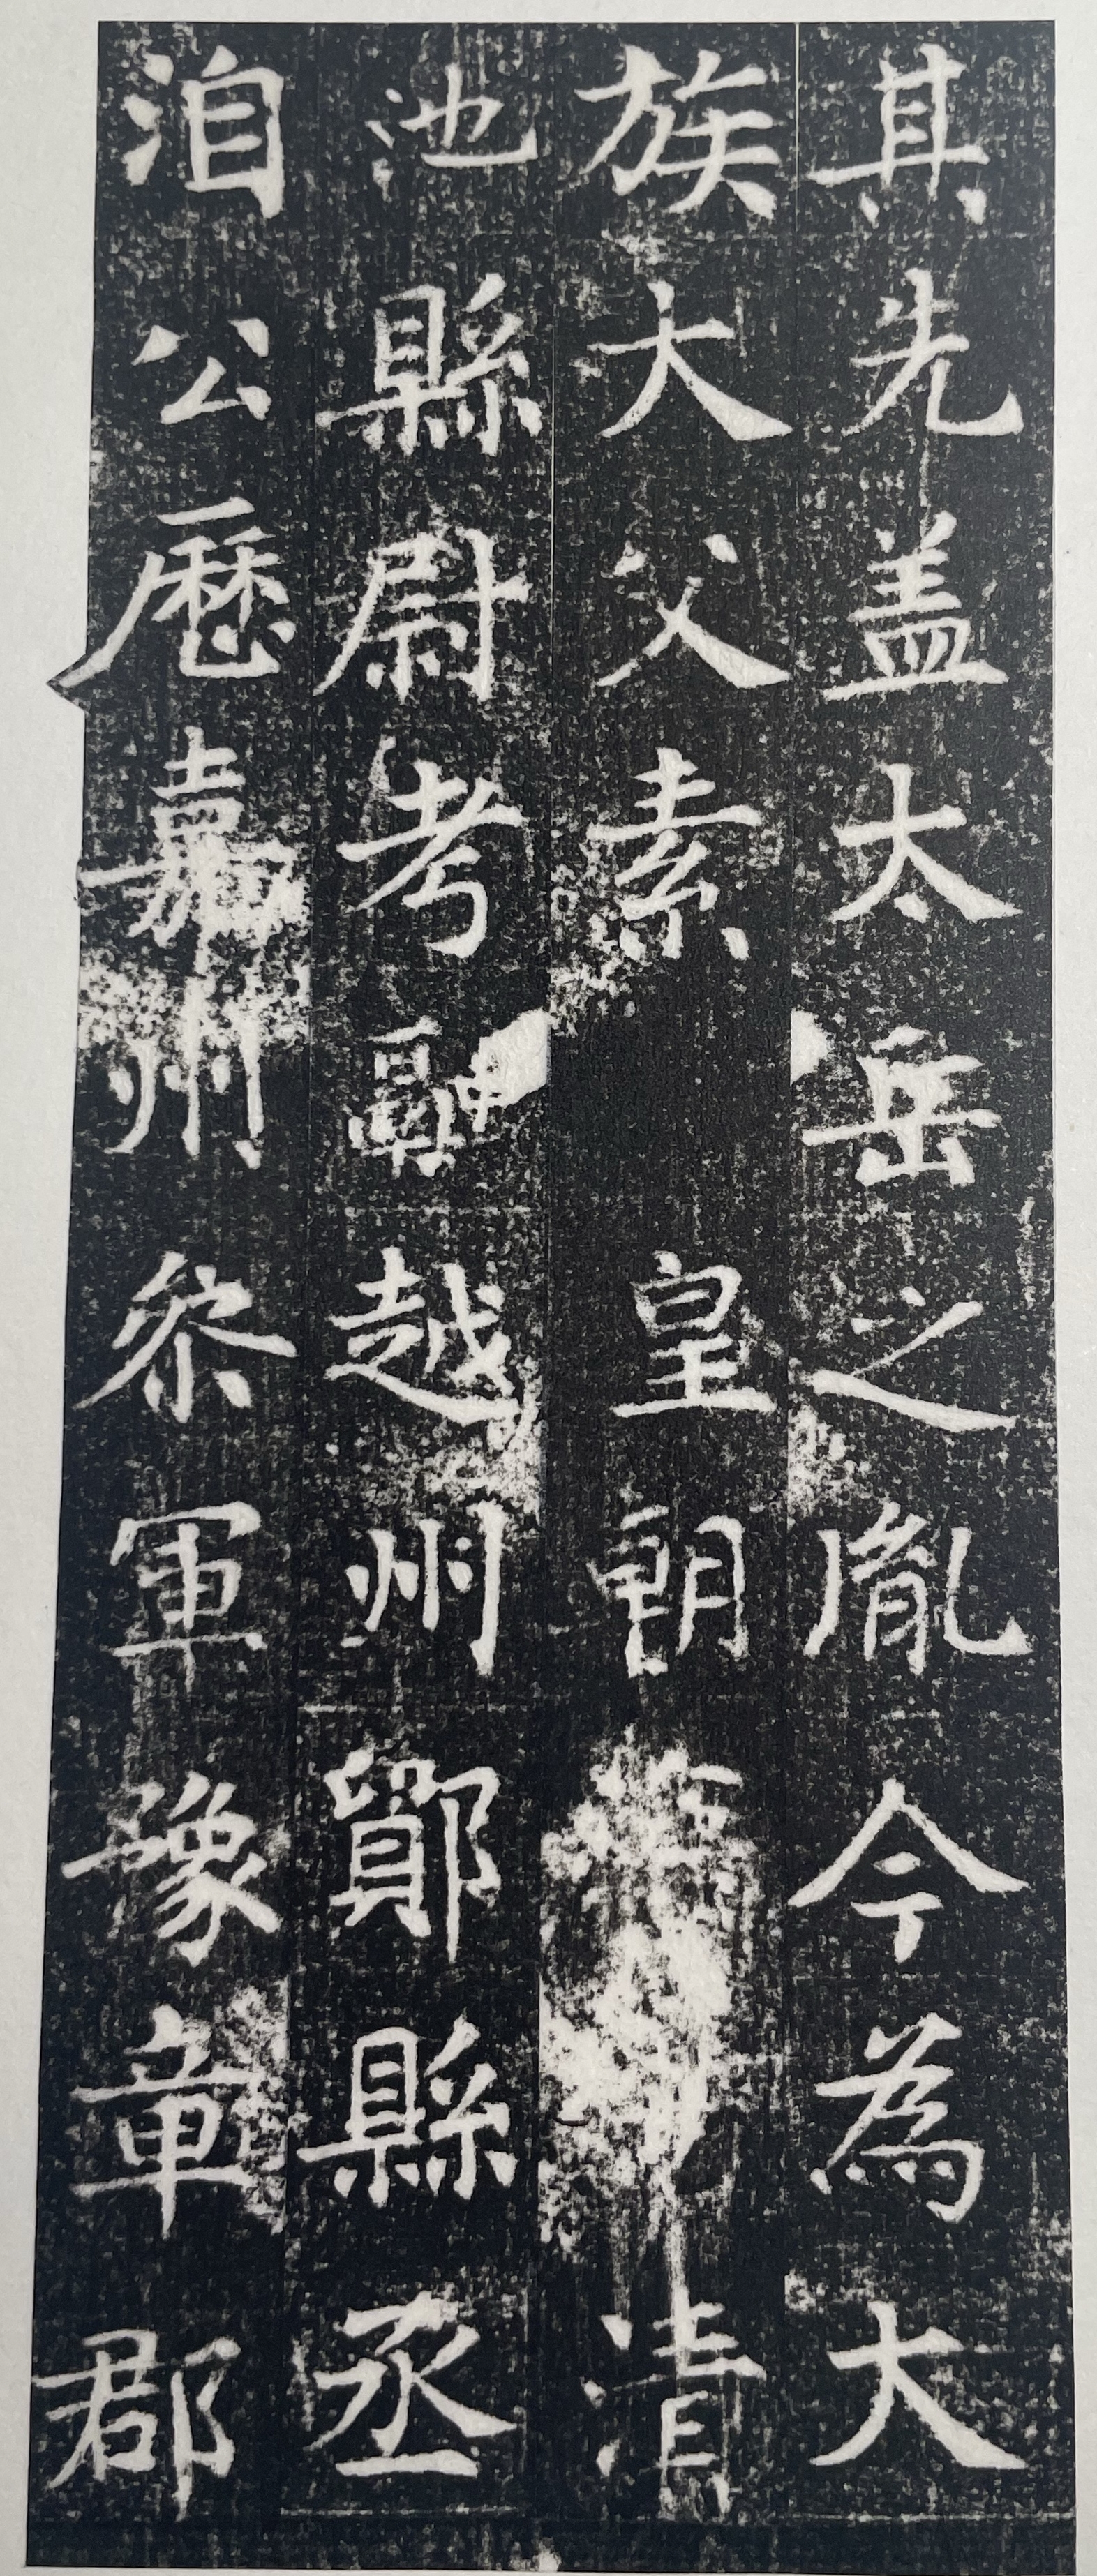 其先盖太岳之胤今為大
族大父素皇朝清
池縣尉考翾越州鄮縣丞
洎公歷嘉州叅軍豫章郡